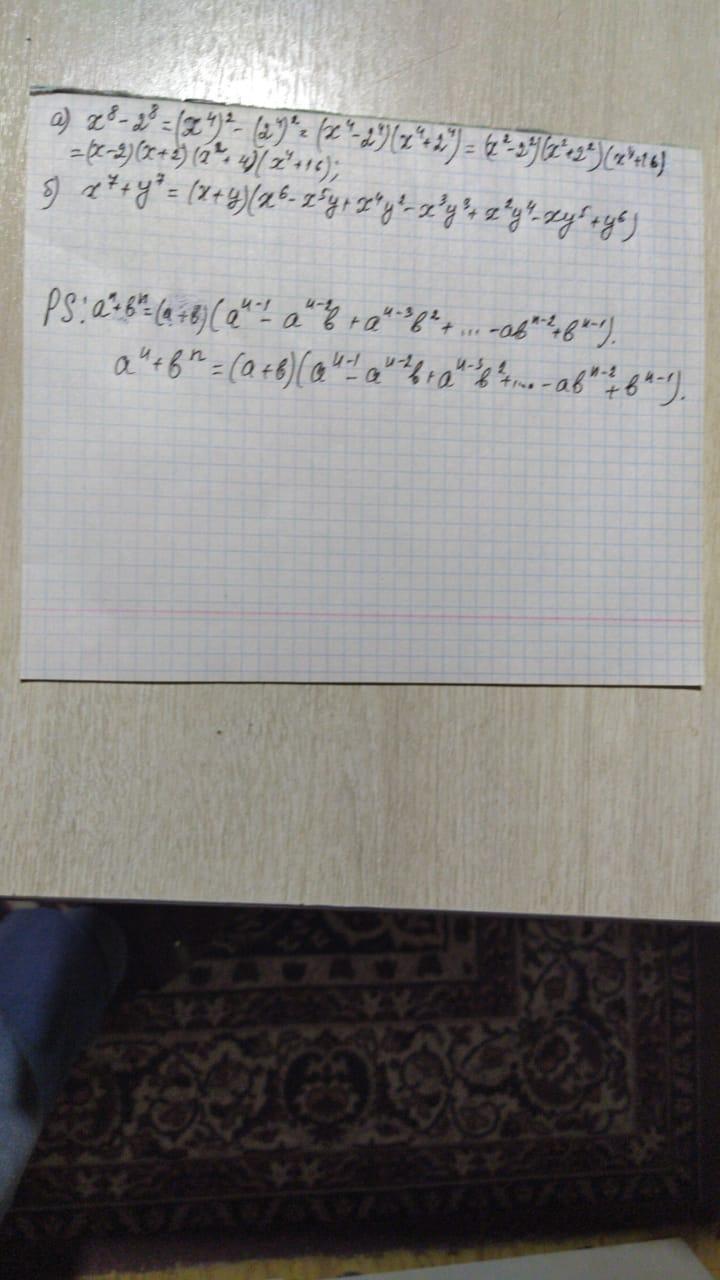 а) x⁸ - 2⁸ = (x⁴)² - (2⁴)² = (x⁴ - 2⁴)(x⁴ + 2⁴) = (x² - 2²)(x² + 2²)(x⁴ + 16)
= (x - 2)(x + 2)(x² + 4)(x⁴ + 16);
б) x⁷ + y⁷ = (x + y)(x⁶ - x⁵y + x⁴y² - x³y³ + x²y⁴ - xy⁵ + y⁶)
PS: aⁿ + bⁿ = (a + b)(aⁿ⁻¹ - aⁿ⁻²b + aⁿ⁻³b² + ... - abⁿ⁻² + bⁿ⁻¹).
aⁿ + bⁿ = (a + b)(aⁿ⁻¹ - aⁿ⁻²b + aⁿ⁻³b² + ... - abⁿ⁻² + bⁿ⁻¹).